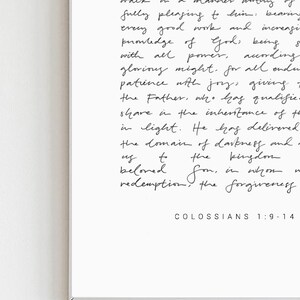 walk in a manner worthy of
fully pleasing to him: bearing
every good work and increasi
knowledge of God; being s
with all power, according
glorious might, for all endur
patience with joy, giving
the Father, who has qualifie
share in the inheritance of t
in light. He has delivered
the domain of darkness and
us to the kingdom
beloved Son, in whom w
redemption, the forgiveness
COLOSSIANS 1:9-14